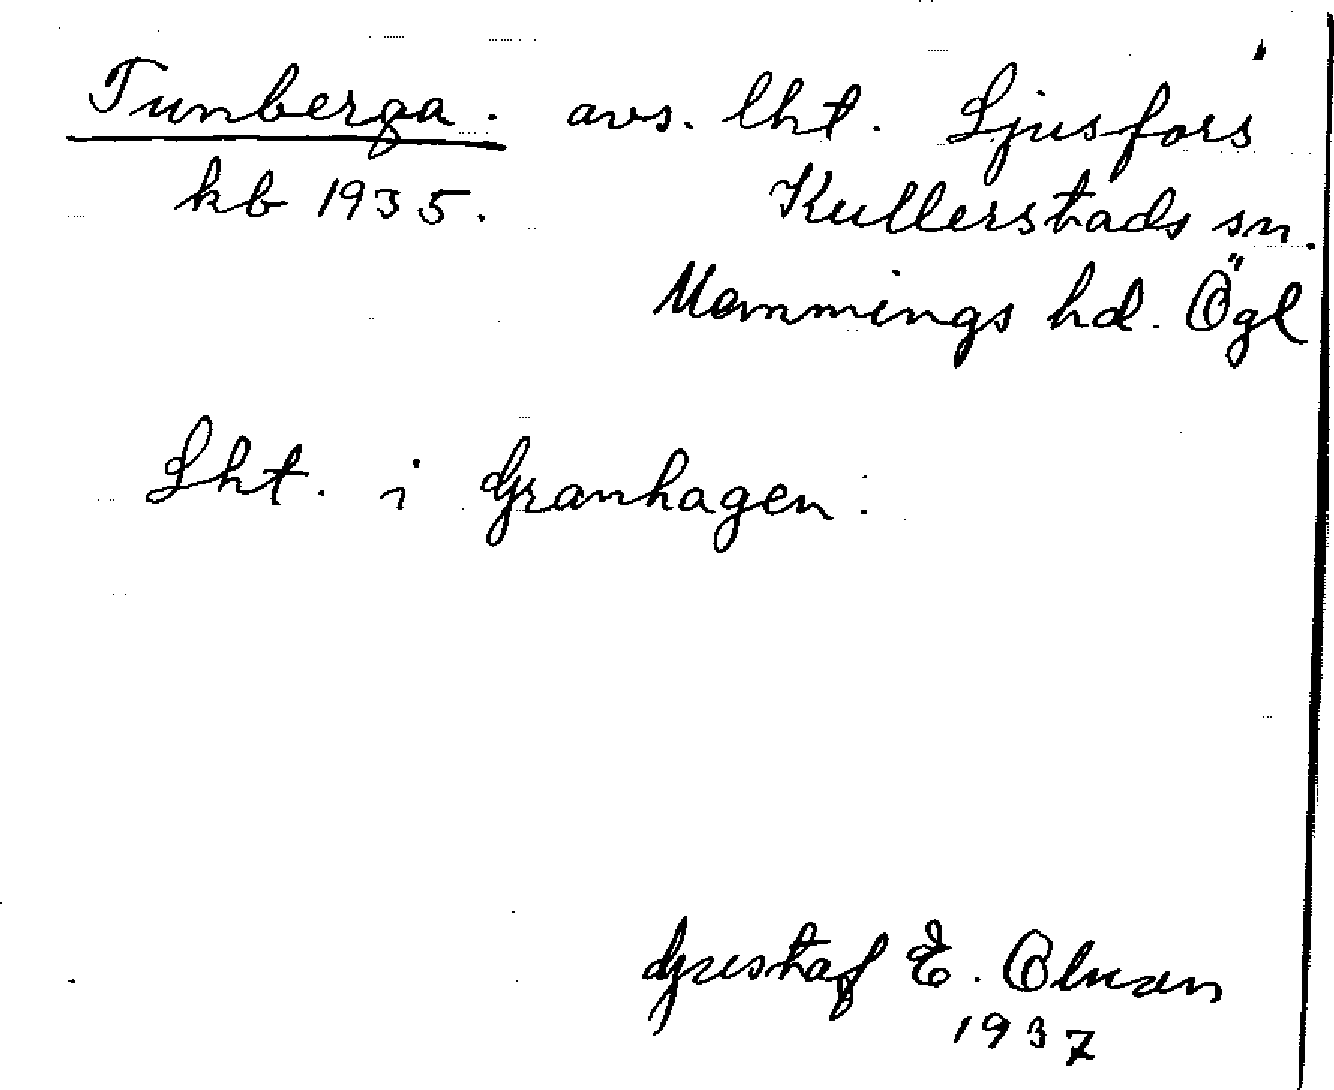 Tunberga. avs. lht. Ljusfors
kb 1935. Kullerstads sn.
Memmings hd. Ögl
Lht. i Granhagen.
Gustaf E. Olsson
1937